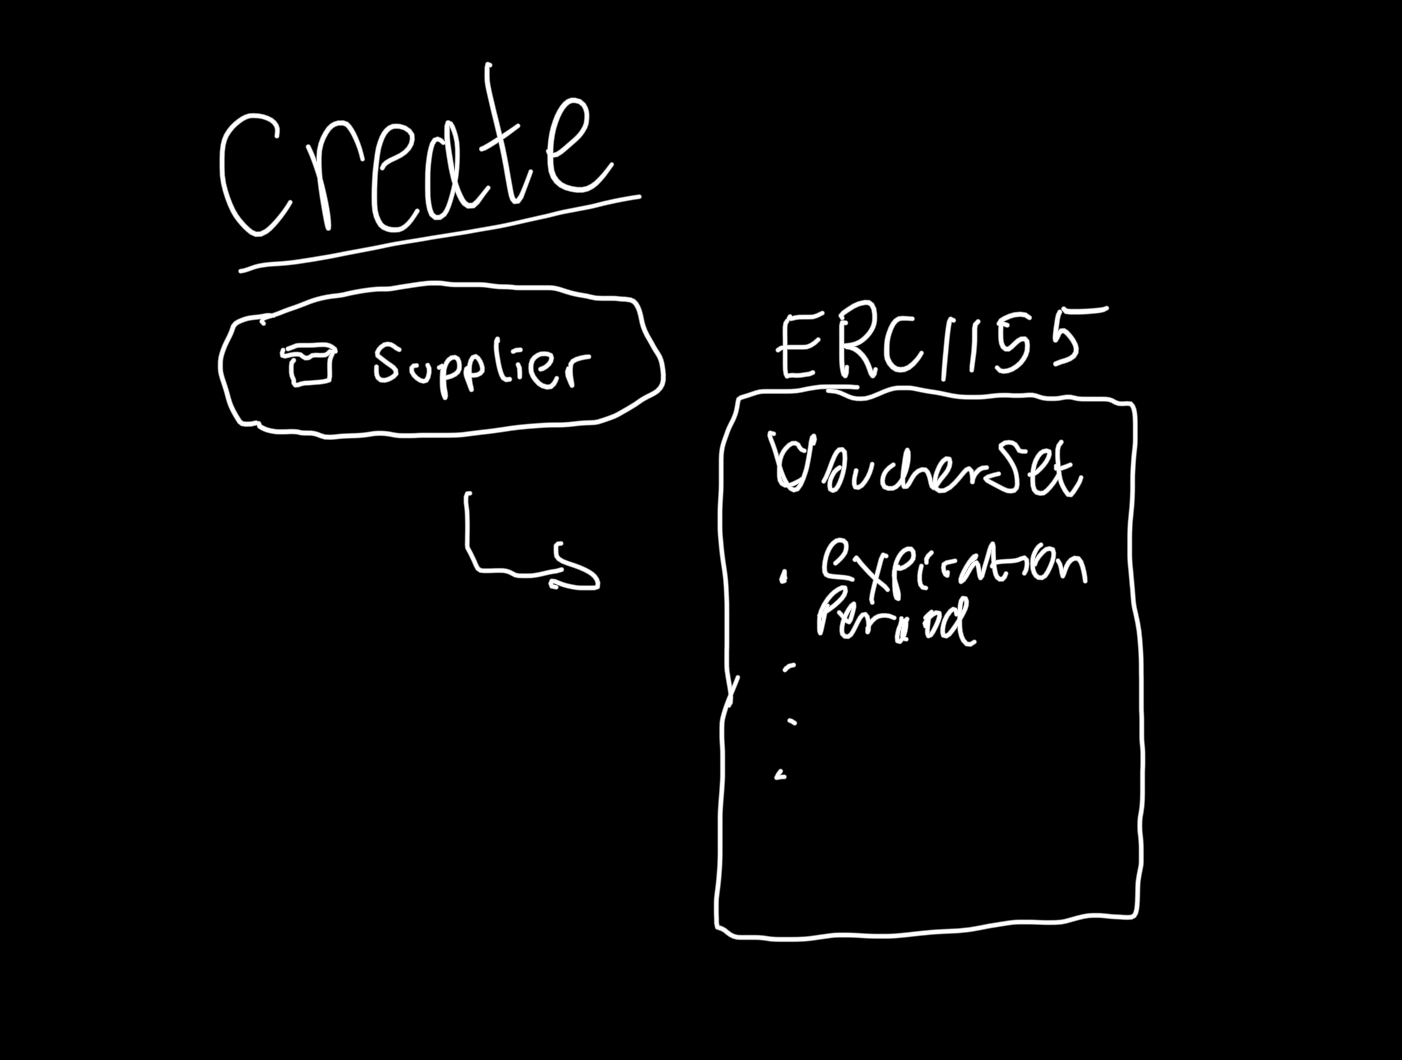 Create
Supplier
ERC1155
VoucherSet
· Expiration
Period
·
·
·